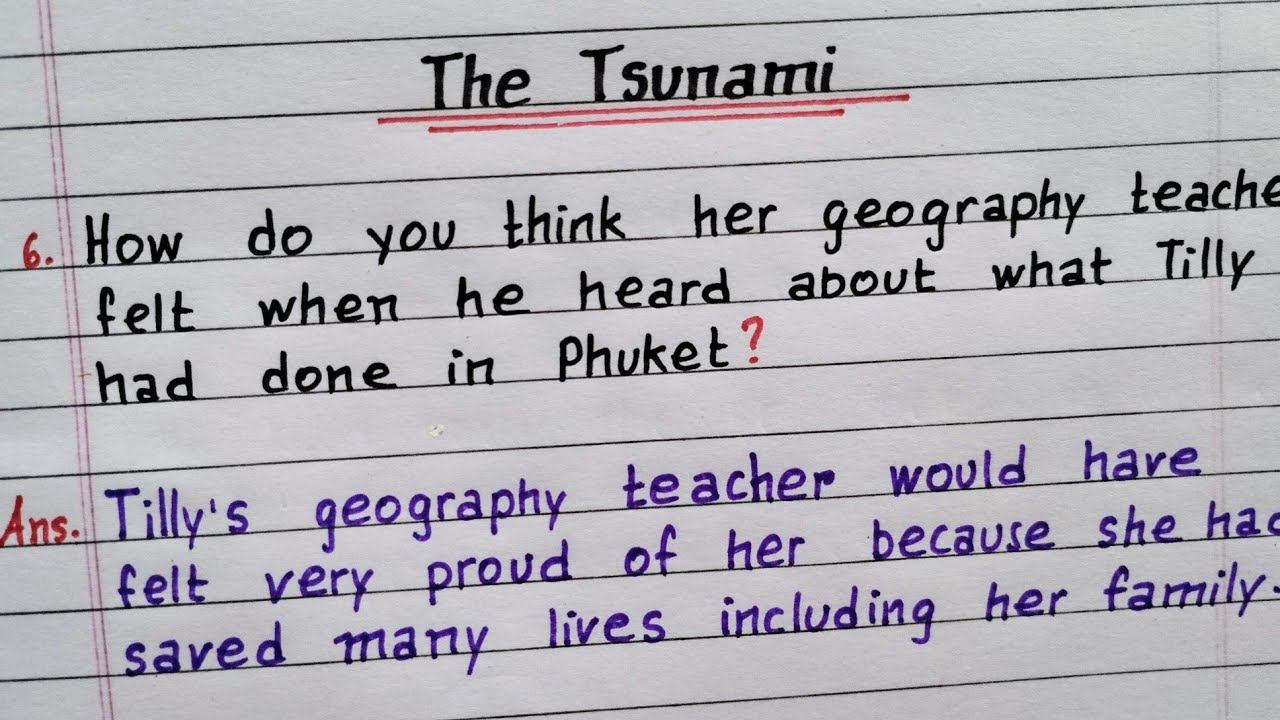 The Tsunami
6. How do you think her geography teache
felt when he heard about what Tilly
had done in Phuket?
Ans. Tilly's geography teacher would have
felt very proud of her because she had
saved many lives including her family.